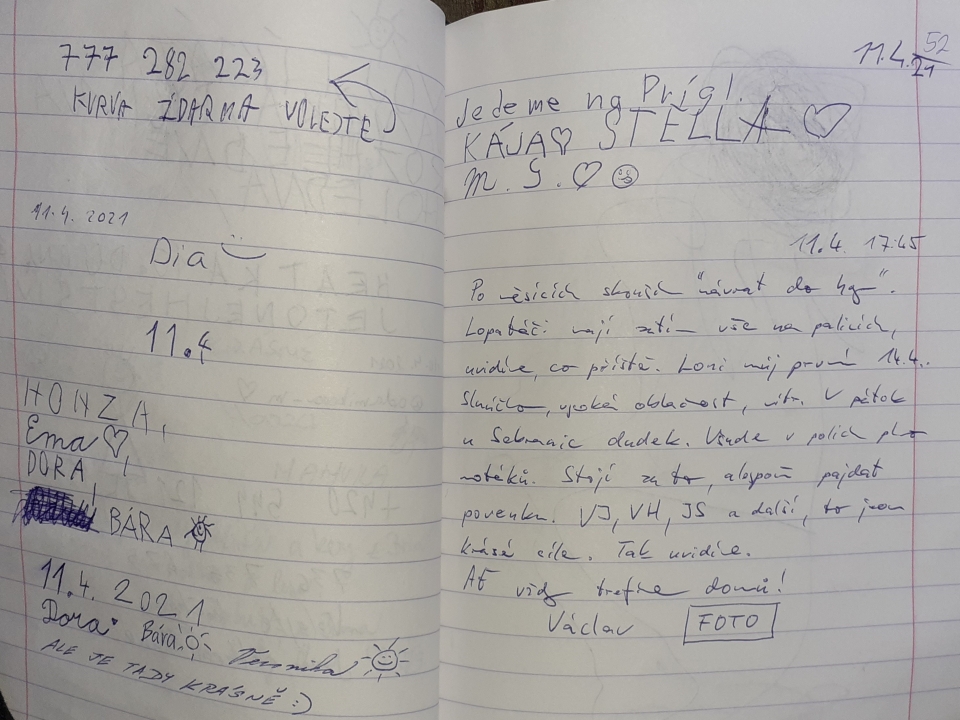 777 282 223
KURVA ZDARMA VOLEJTE
11.4. 2021
Dia
11.4
HONZA,
Ema♡,
DORA,
BÁRA
11.4. 2021
Dora Bára Veronika
ALE JE TADY KRÁSNĚ :)
52
11.4. 21
Jedeme na Prígl.
KÁJA♡ STELLA ♡
M. S. ♡ ☺
11.4. 17:45
Po měsících skouších "návrat do hg".
Lopatáči mají zatím vše na palicích,
uvidíme, co příště. Loni můj první 14.4..
Sluníčko, vysoká oblačnost, vítr. V pátek
u Sebranic dudek. Všude v polích plno
motáků. Stojí za to, alespoň pajdat
povenku. VJ, VH, JS a další, to jsou
krásé cíle. Tak uvidíme.
Ať vždy trefíme domů!
Václav FOTO